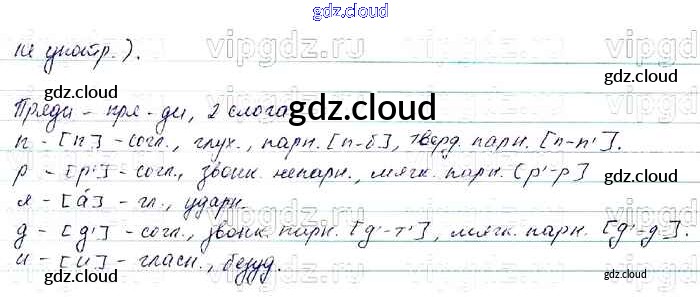 gdz.cloud
не употр.).
gdz.cloud
Пряди - пря-ди, 2 слога
gdz.cloud
п - [п] - согл., глух., парн. [п-б], тверд. парн. [п-п'].
р - [р'] - согл., звонк. непарн., мягк. парн. [р'-р]
gdz.cloud
я - [а́] - гл., ударн.
д - [д'] - согл., звонк. парн. [д'-т'], мягк. парн. [д'-д].
и - [и] - гласн., безуд.
gdz.cloud